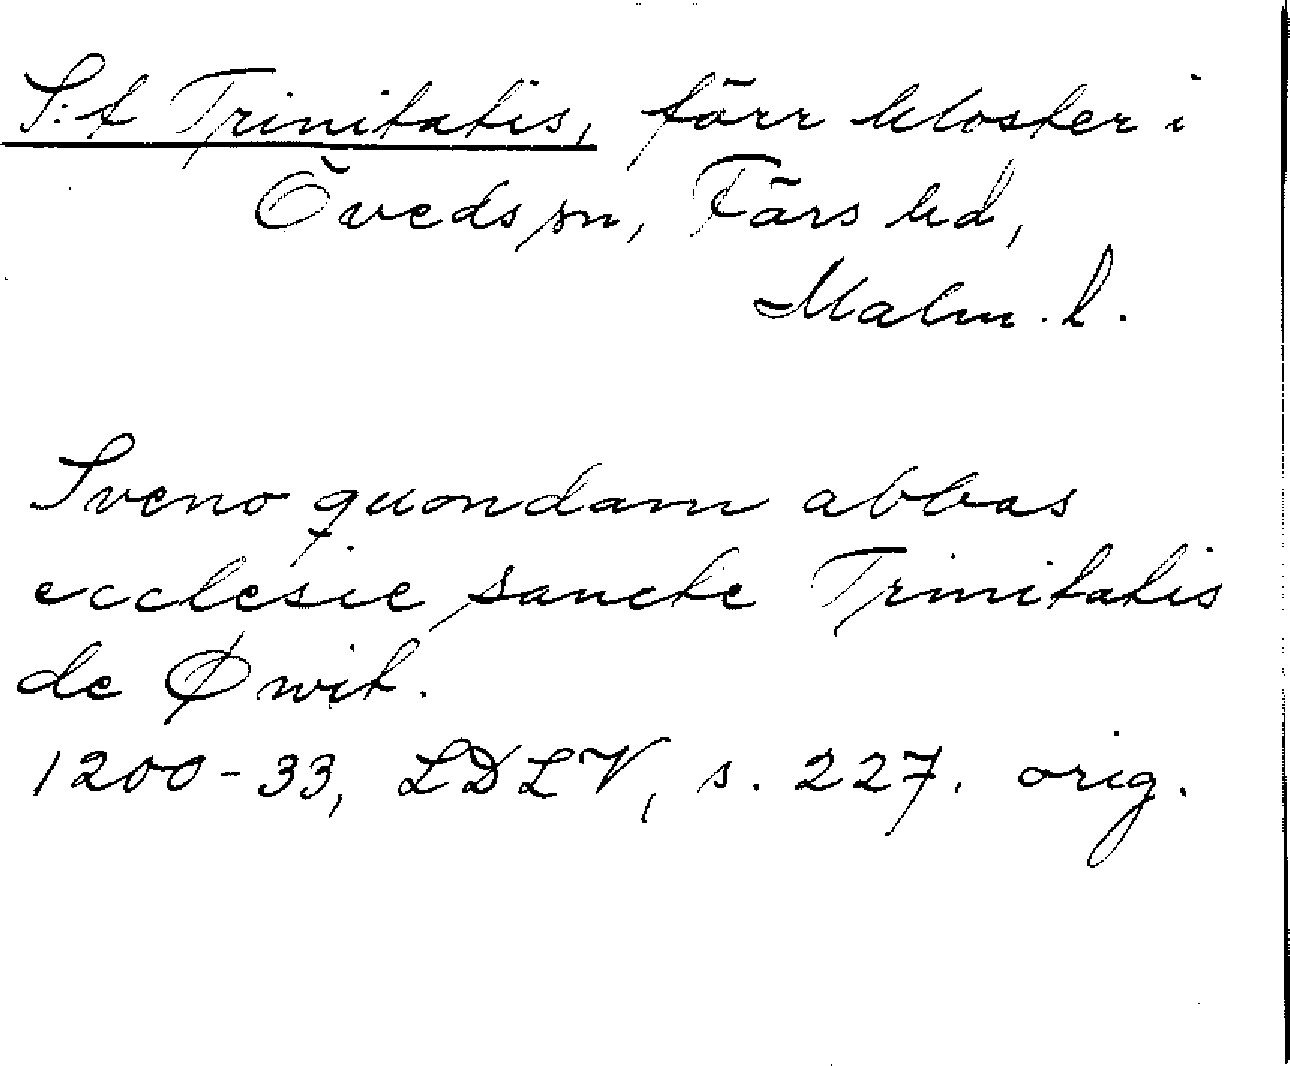 S:t Trinitatis, förr kloster i
Öveds sn, Färs hd,
Malm. l.
Sveno quondam abbas
ecclesie sancte Trinitatis
de Øwit.
1200-33, LDLV, s. 227. orig.